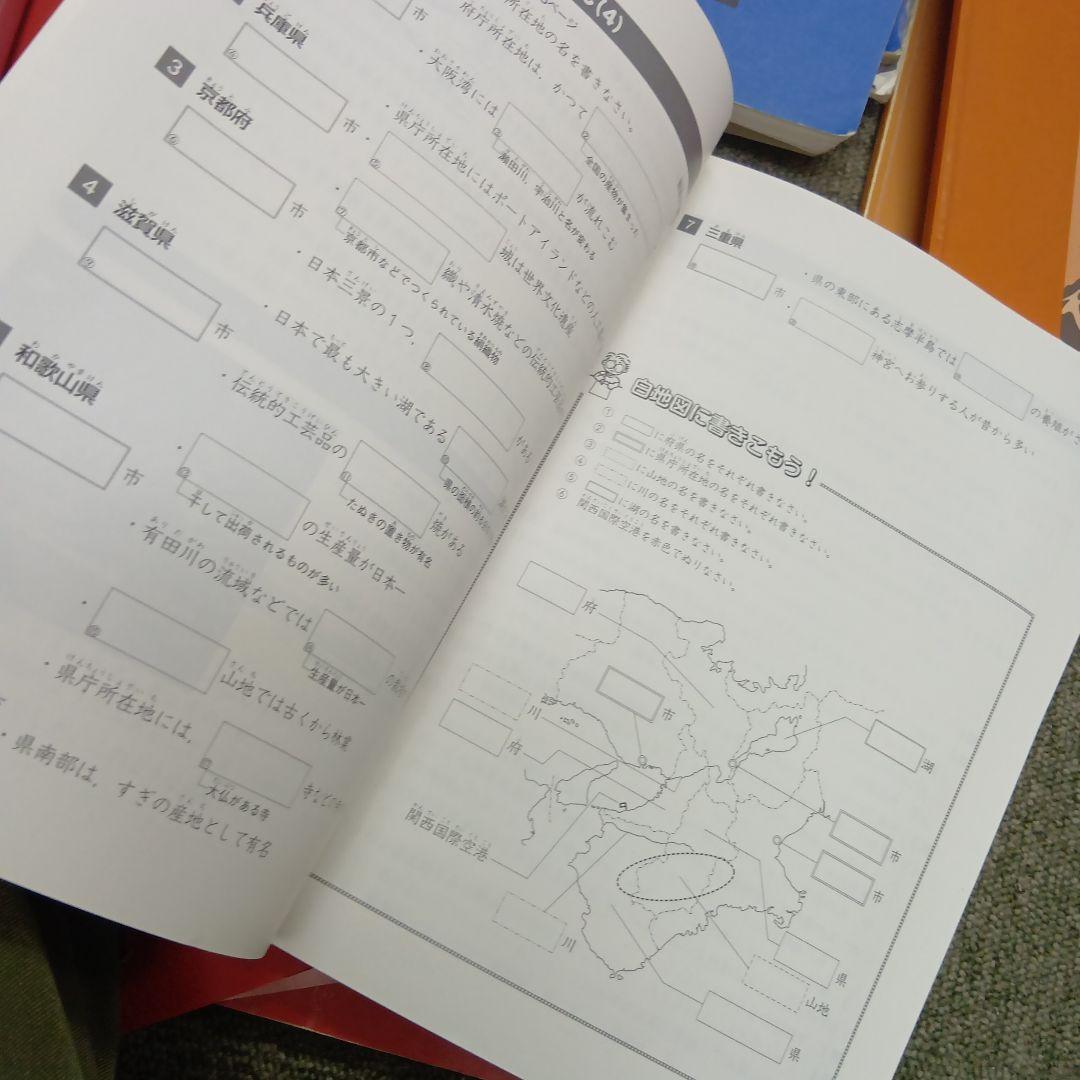 (4)
ページ
所在地の名を書きなさい。
市
府庁所在地は、かつて
②
全国の産物が集まった
兵庫県
④
市
・大阪湾には
③
が流れこむ
瀬田川，宇治川と名が変わる
3
京都府
⑥
市
・県庁所在地にはポートアイランドなどの人工島
⑤
城は世界文化遺産
・
⑦
織や清水焼などの伝統的工芸品
京都市などでつくられている絹織物
4
滋賀県
⑨
市
・日本三景の1つ，
⑧
がある
・日本で最も大きい湖である
⑩
・伝統的工芸品の
⑪
焼がある
たぬきの置き物が有名
和歌山県
市
・
⑬
の生産量が日本一
干して出荷されるものが多い
・有田川の流域などでは
⑭
生産量が日本一
・
山地では古くから林業
・県庁所在地には，
寺など
大仏がある寺
・県南部は，すぎの産地として有名
7
三重県
市
・県の東部にある志摩半島では
の養殖がさ
・
神宮へお参りする人が昔から多い
白地図に書きこもう！
① に府県の名をそれぞれ書きなさい。
② に県庁所在地の名をそれぞれ書きなさい。
③ に山地の名を書きなさい。
④ に川の名をそれぞれ書きなさい。
⑤ に湖の名を書きなさい。
⑥ 関西国際空港を赤色でぬりなさい。
府
市
川
府
湖
関西国際空港
市
市
川
県
山地
県